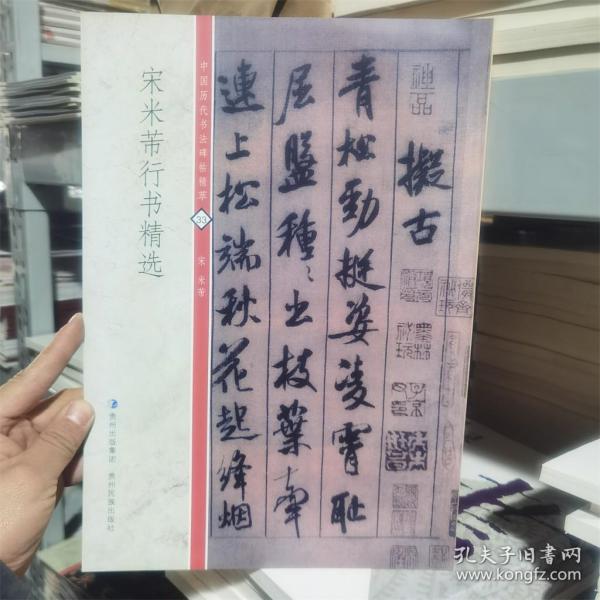 宋米芾行书精选
贵州出版集团 贵州民族出版社
中国历代书法碑帖精萃
33
宋 米芾
神品
擬古
青松勁挺姿凌霄耻
屈盤種〻出枝葉牽
連上松端秋花起絳烟
孔夫子旧书网
www.kongfz.com